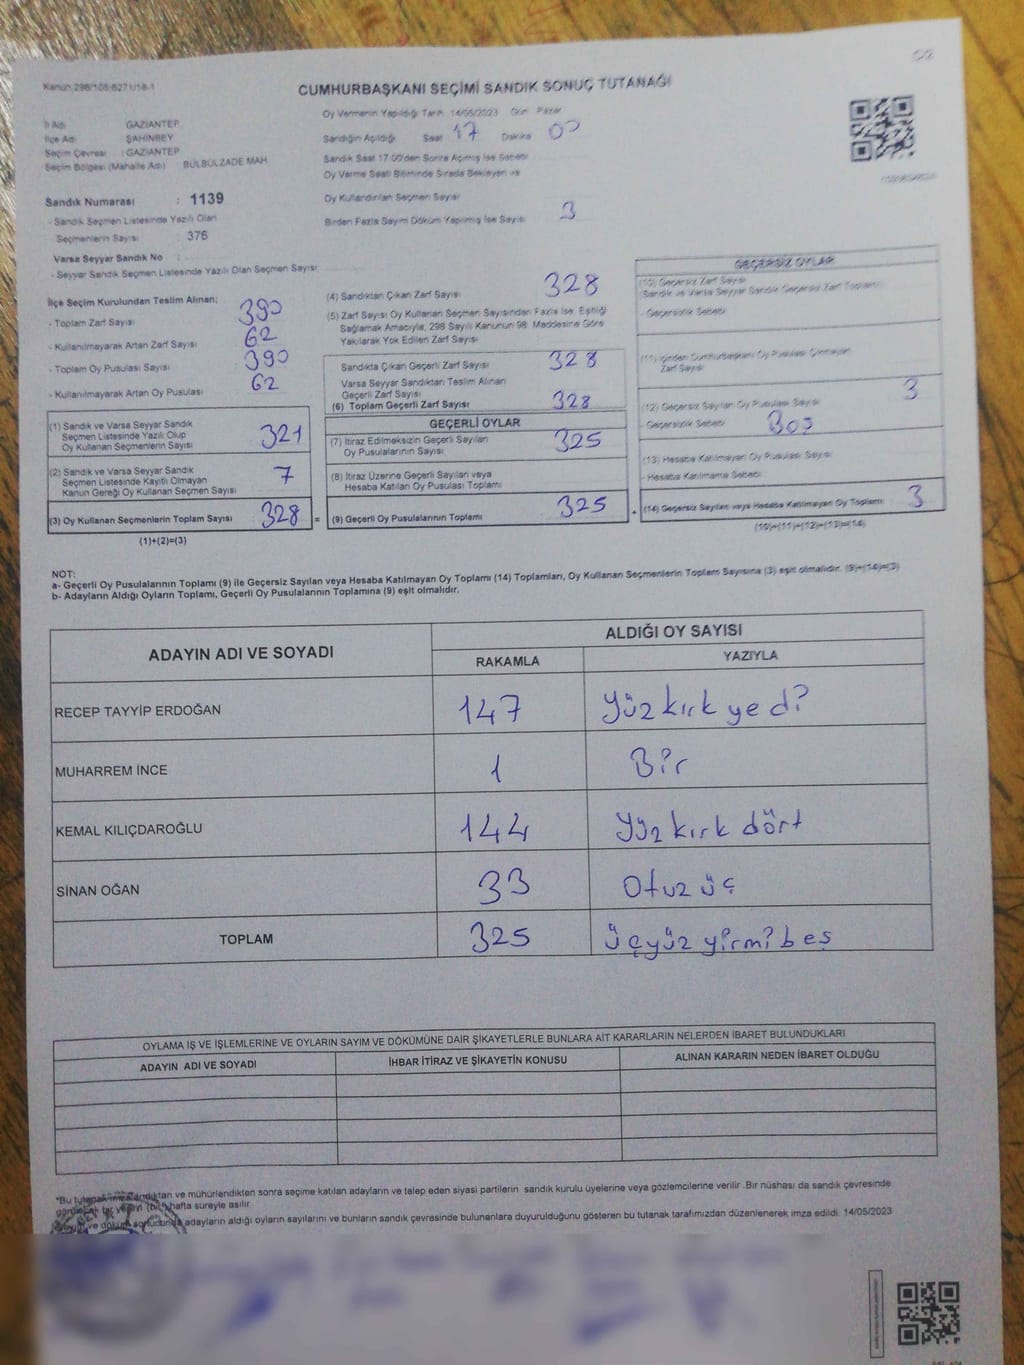 Kanun 298/105-6271/18-1
02
CUMHURBAŞKANI SEÇİMİ SANDIK SONUÇ TUTANAĞI
İl Adı GAZİANTEP
İlçe Adı ŞAHİNBEY
Seçim Çevresi : GAZİANTEP
Seçim Bölgesi (Mahalle Adı) BÜLBÜLZADE MAH
Oy Vermenin Yapıldığı Tarih 14/05/2023 Gün Pazar
Sandığın Açıldığı Saat 17 Dakika 00
Sandık Saat 17.00'den Sonra Açılmış İse Sebebi
Oy Verme Saati Bitiminde Sırada Bekleyen ve
Oy Kullandırılan Seçmen Sayısı
Birden Fazla Sayım Döküm Yapılmış İse Sayısı 3
Sandık Numarası : 1139
- Sandık Seçmen Listesinde Yazılı Olan
Seçmenlerin Sayısı : 376
Varsa Seyyar Sandık No :
- Seyyar Sandık Seçmen Listesinde Yazılı Olan Seçmen Sayısı:
İlçe Seçim Kurulundan Teslim Alınan;
- Toplam Zarf Sayısı 390
- Kullanılmayarak Artan Zarf Sayısı 62
- Toplam Oy Pusulası Sayısı 390
- Kullanılmayarak Artan Oy Pusulası 62
(1) Sandık ve Varsa Seyyar Sandık
Seçmen Listesinde Yazılı Olup
Oy Kullanan Seçmenlerin Sayısı 321
(2) Sandık ve Varsa Seyyar Sandık
Seçmen Listesinde Kayıtlı Olmayan
Kanun Gereği Oy Kullanan Seçmen Sayısı 7
(3) Oy Kullanan Seçmenlerin Toplam Sayısı 328 =
(1)+(2)=(3)
(4) Sandıktan Çıkan Zarf Sayısı 328
(5) Zarf Sayısı Oy Kullanan Seçmen Sayısından Fazla İse, Eşitliği
Sağlamak Amacıyla, 298 Sayılı Kanunun 98. Maddesine Göre
Yakılarak Yok Edilen Zarf Sayısı
Sandıkta Çıkan Geçerli Zarf Sayısı 328
Varsa Seyyar Sandıktan Teslim Alınan
Geçerli Zarf Sayısı
(6) Toplam Geçerli Zarf Sayısı 328
GEÇERLİ OYLAR
(7) İtiraz Edilmeksizin Geçerli Sayılan
Oy Pusulalarının Sayısı 325
(8) İtiraz Üzerine Geçerli Sayılan veya
Hesaba Katılan Oy Pusulası Toplamı
(9) Geçerli Oy Pusulalarının Toplamı 325 +
GEÇERSİZ OYLAR
(10) Geçersiz Zarf Sayısı
(Sandık ve Varsa Seyyar Sandık Geçersiz Zarf Toplamı)
- Geçersizlik Sebebi
(11) İçinden Cumhurbaşkanı Oy Pusulası Çıkmayan
Zarf Sayısı
(12) Geçersiz Sayılan Oy Pusulası Sayısı 3
- Geçersizlik Sebebi
(13) Hesaba Katılmayan Oy Pusulası Sayısı
- Hesaba Katılmama Sebebi
(14) Geçersiz Sayılan veya Hesaba Katılmayan Oy Toplamı 3
(10)+(11)+(12)+(13)=(14)
NOT:
a- Geçerli Oy Pusulalarının Toplamı (9) ile Geçersiz Sayılan veya Hesaba Katılmayan Oy Toplamı (14) Toplamları, Oy Kullanan Seçmenlerin Toplam Sayısına (3) eşit olmalıdır. (9)+(14)=(3)
b- Adayların Aldığı Oyların Toplamı, Geçerli Oy Pusulalarının Toplamına (9) eşit olmalıdır.
ADAYIN ADI VE SOYADI
ALDIĞI OY SAYISI
RAKAMLA YAZIYLA
RECEP TAYYİP ERDOĞAN 147 Yüz kırk yedi
MUHARREM İNCE 1 Bir
KEMAL KILIÇDAROĞLU 144 Yüz kırk dört
SİNAN OĞAN 33 Otuz üç
TOPLAM 325 üçyüz yirmi beş
OYLAMA İŞ VE İŞLEMLERİNE VE OYLARIN SAYIM VE DÖKÜMÜNE DAİR ŞİKAYETLERLE BUNLARA AİT KARARLARIN NELERDEN İBARET BULUNDUKLARI
ADAYIN ADI VE SOYADI İHBAR İTİRAZ VE ŞİKAYETİN KONUSU ALINAN KARARIN NEDEN İBARET OLDUĞU
*Bu tutanak imzalandıktan ve mühürlendikten sonra seçime katılan adayların ve talep eden siyasi partilerin sandık kurulu üyelerine veya gözlemcilerine verilir .Bir nüshası da sandık çevresinde
bir yere (bir) hafta süreyle asılır
ve döküm sonucunda adayların aldığı oyların sayılarını ve bunların sandık çevresinde bulunanlara duyurulduğunu gösteren bu tutanak tarafımızdan düzenlenerek imza edildi. 14/05/2023